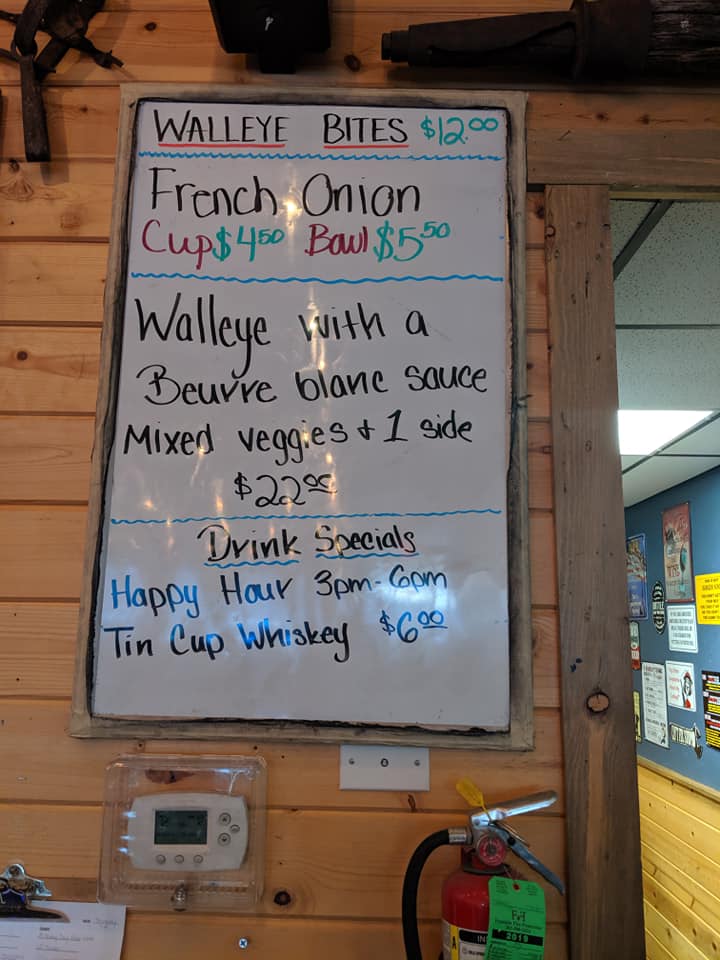 WALLEYE BITES $12.00
French Onion
Cup $4.50 Bowl $5.50
Walleye with a
Beurre blanc sauce
Mixed veggies + 1 side
$22.00
Drink Specials
Happy Hour 3pm-6pm
Tin Cup Whiskey $6.00
2019